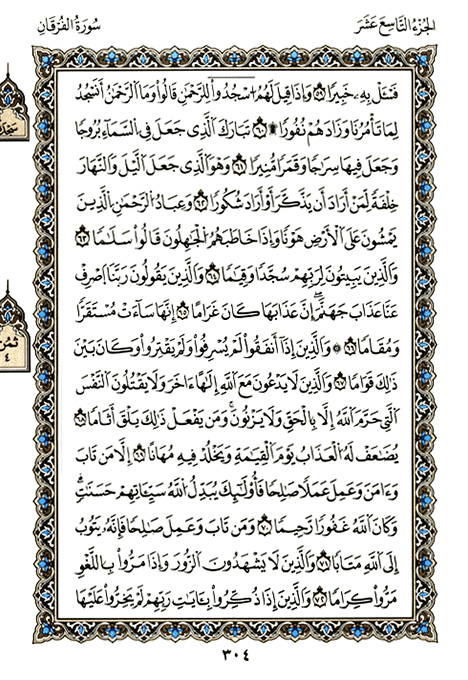 الجُزْءُ التَّاسِعَ عَشَرَ
سُورَةُ الفُرْقَانِ
فَسْـَٔلْ بِهِۦ خَبِيرًا ٥٩ وَإِذَا قِيلَ لَهُمُ ٱسْجُدُوا۟ لِلرَّحْمَٰنِ قَالُوا۟ وَمَا ٱلرَّحْمَٰنُ أَنَسْجُدُ
لِمَا تَأْمُرُنَا وَزَادَهُمْ نُفُورًا۩ ٦٠ تَبَارَكَ ٱلَّذِى جَعَلَ فِى ٱلسَّمَآءِ بُرُوجًا
وَجَعَلَ فِيهَا سِرَٰجًا وَقَمَرًا مُّنِيرًا ٦١ وَهُوَ ٱلَّذِى جَعَلَ ٱلَّيْلَ وَٱلنَّهَارَ
خِلْفَةً لِّمَنْ أَرَادَ أَن يَذَّكَّرَ أَوْ أَرَادَ شُكُورًا ٦٢ وَعِبَادُ ٱلرَّحْمَٰنِ ٱلَّذِينَ
يَمْشُونَ عَلَى ٱلْأَرْضِ هَوْنًا وَإِذَا خَاطَبَهُمُ ٱلْجَٰهِلُونَ قَالُوا۟ سَلَٰمًا ٦٣
وَٱلَّذِينَ يَبِيتُونَ لِرَبِّهِمْ سُجَّدًا وَقِيَٰمًا ٦٤ وَٱلَّذِينَ يَقُولُونَ رَبَّنَا ٱصْرِفْ
عَنَّا عَذَابَ جَهَنَّمَ إِنَّ عَذَابَهَا كَانَ غَرَامًا ٦٥ إِنَّهَا سَآءَتْ مُسْتَقَرًّا
وَمُقَامًا ٦٦ ۞ وَٱلَّذِينَ إِذَآ أَنفَقُوا۟ لَمْ يُسْرِفُوا۟ وَلَمْ يَقْتِرُوا۟ وَكَانَ بَيْنَ
ذَٰلِكَ قَوَامًا ٦٧ وَٱلَّذِينَ لَا يَدْعُونَ مَعَ ٱللَّهِ إِلَٰهًا ءَاخَرَ وَلَا يَقْتُلُونَ ٱلنَّفْسَ
ٱلَّتِى حَرَّمَ ٱللَّهُ إِلَّا بِٱلْحَقِّ وَلَا يَزْنُونَ وَمَن يَفْعَلْ ذَٰلِكَ يَلْقَ أَثَامًا ٦٨
يُضَٰعَفْ لَهُ ٱلْعَذَابُ يَوْمَ ٱلْقِيَٰمَةِ وَيَخْلُدْ فِيهِ مُهَانًا ٦٩ إِلَّا مَن تَابَ
وَءَامَنَ وَعَمِلَ عَمَلًا صَٰلِحًا فَأُو۟لَٰٓئِكَ يُبَدِّلُ ٱللَّهُ سَيِّـَٔاتِهِمْ حَسَنَٰتٍ
وَكَانَ ٱللَّهُ غَفُورًا رَّحِيمًا ٧٠ وَمَن تَابَ وَعَمِلَ صَٰلِحًا فَإِنَّهُۥ يَتُوبُ
إِلَى ٱللَّهِ مَتَابًا ٧١ وَٱلَّذِينَ لَا يَشْهَدُونَ ٱلزُّورَ وَإِذَا مَرُّوا۟ بِٱللَّغْوِ
مَرُّوا۟ كِرَامًا ٧٢ وَٱلَّذِينَ إِذَا ذُكِّرُوا۟ بِـَٔايَٰتِ رَبِّهِمْ لَمْ يَخِرُّوا۟ عَلَيْهَا
ثُمُن
٤
٣٠٤